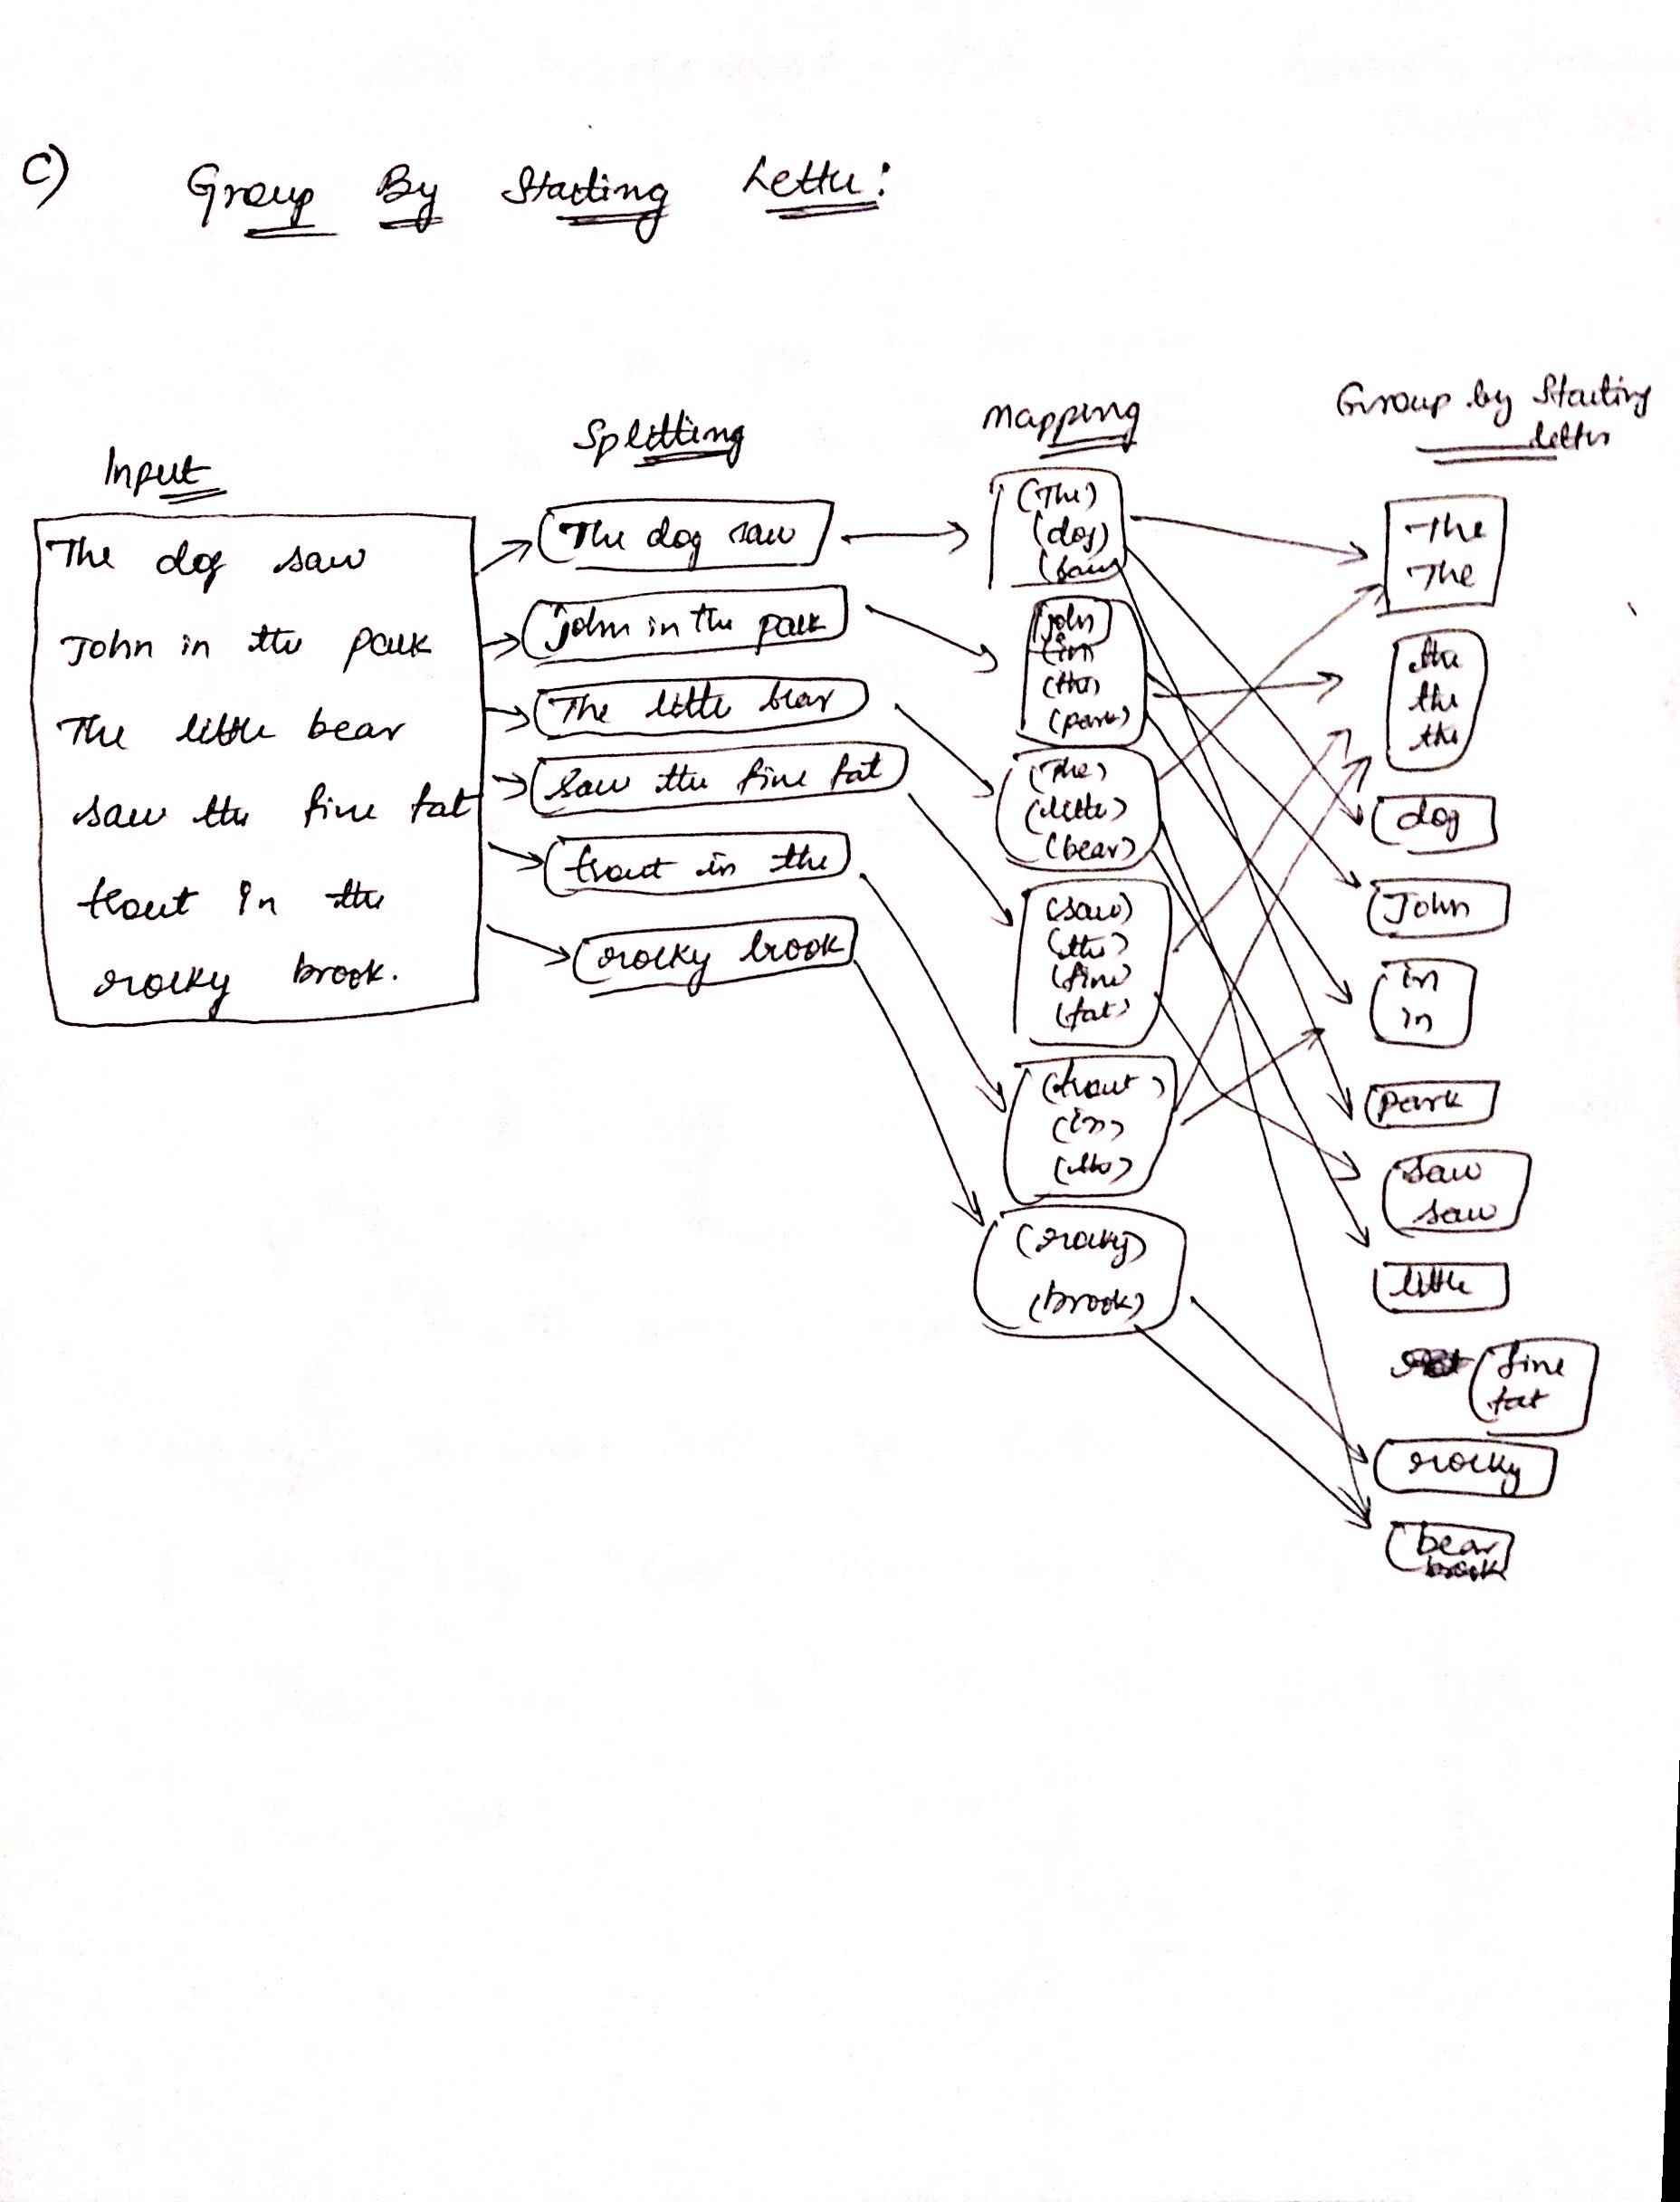 C) Group By Starting Letter:
Input
The dog saw
John in the park
The little bear
saw the fine fat
trout in the
rocky brook.
Splitting
The dog saw
john in the park
The little bear
saw the fine fat
trout in the
rocky brook
Mapping
(The)
(dog)
(saw)
john
(in)
(the)
(park)
(The)
(little)
(bear)
(saw)
(the)
(fine)
(fat)
(trout)
(in)
(the)
(rocky)
(brook)
Group by Starting
letter
The
The
the
the
the
dog
John
in
in
park
saw
saw
little
fine
fat
rocky
bear
brook